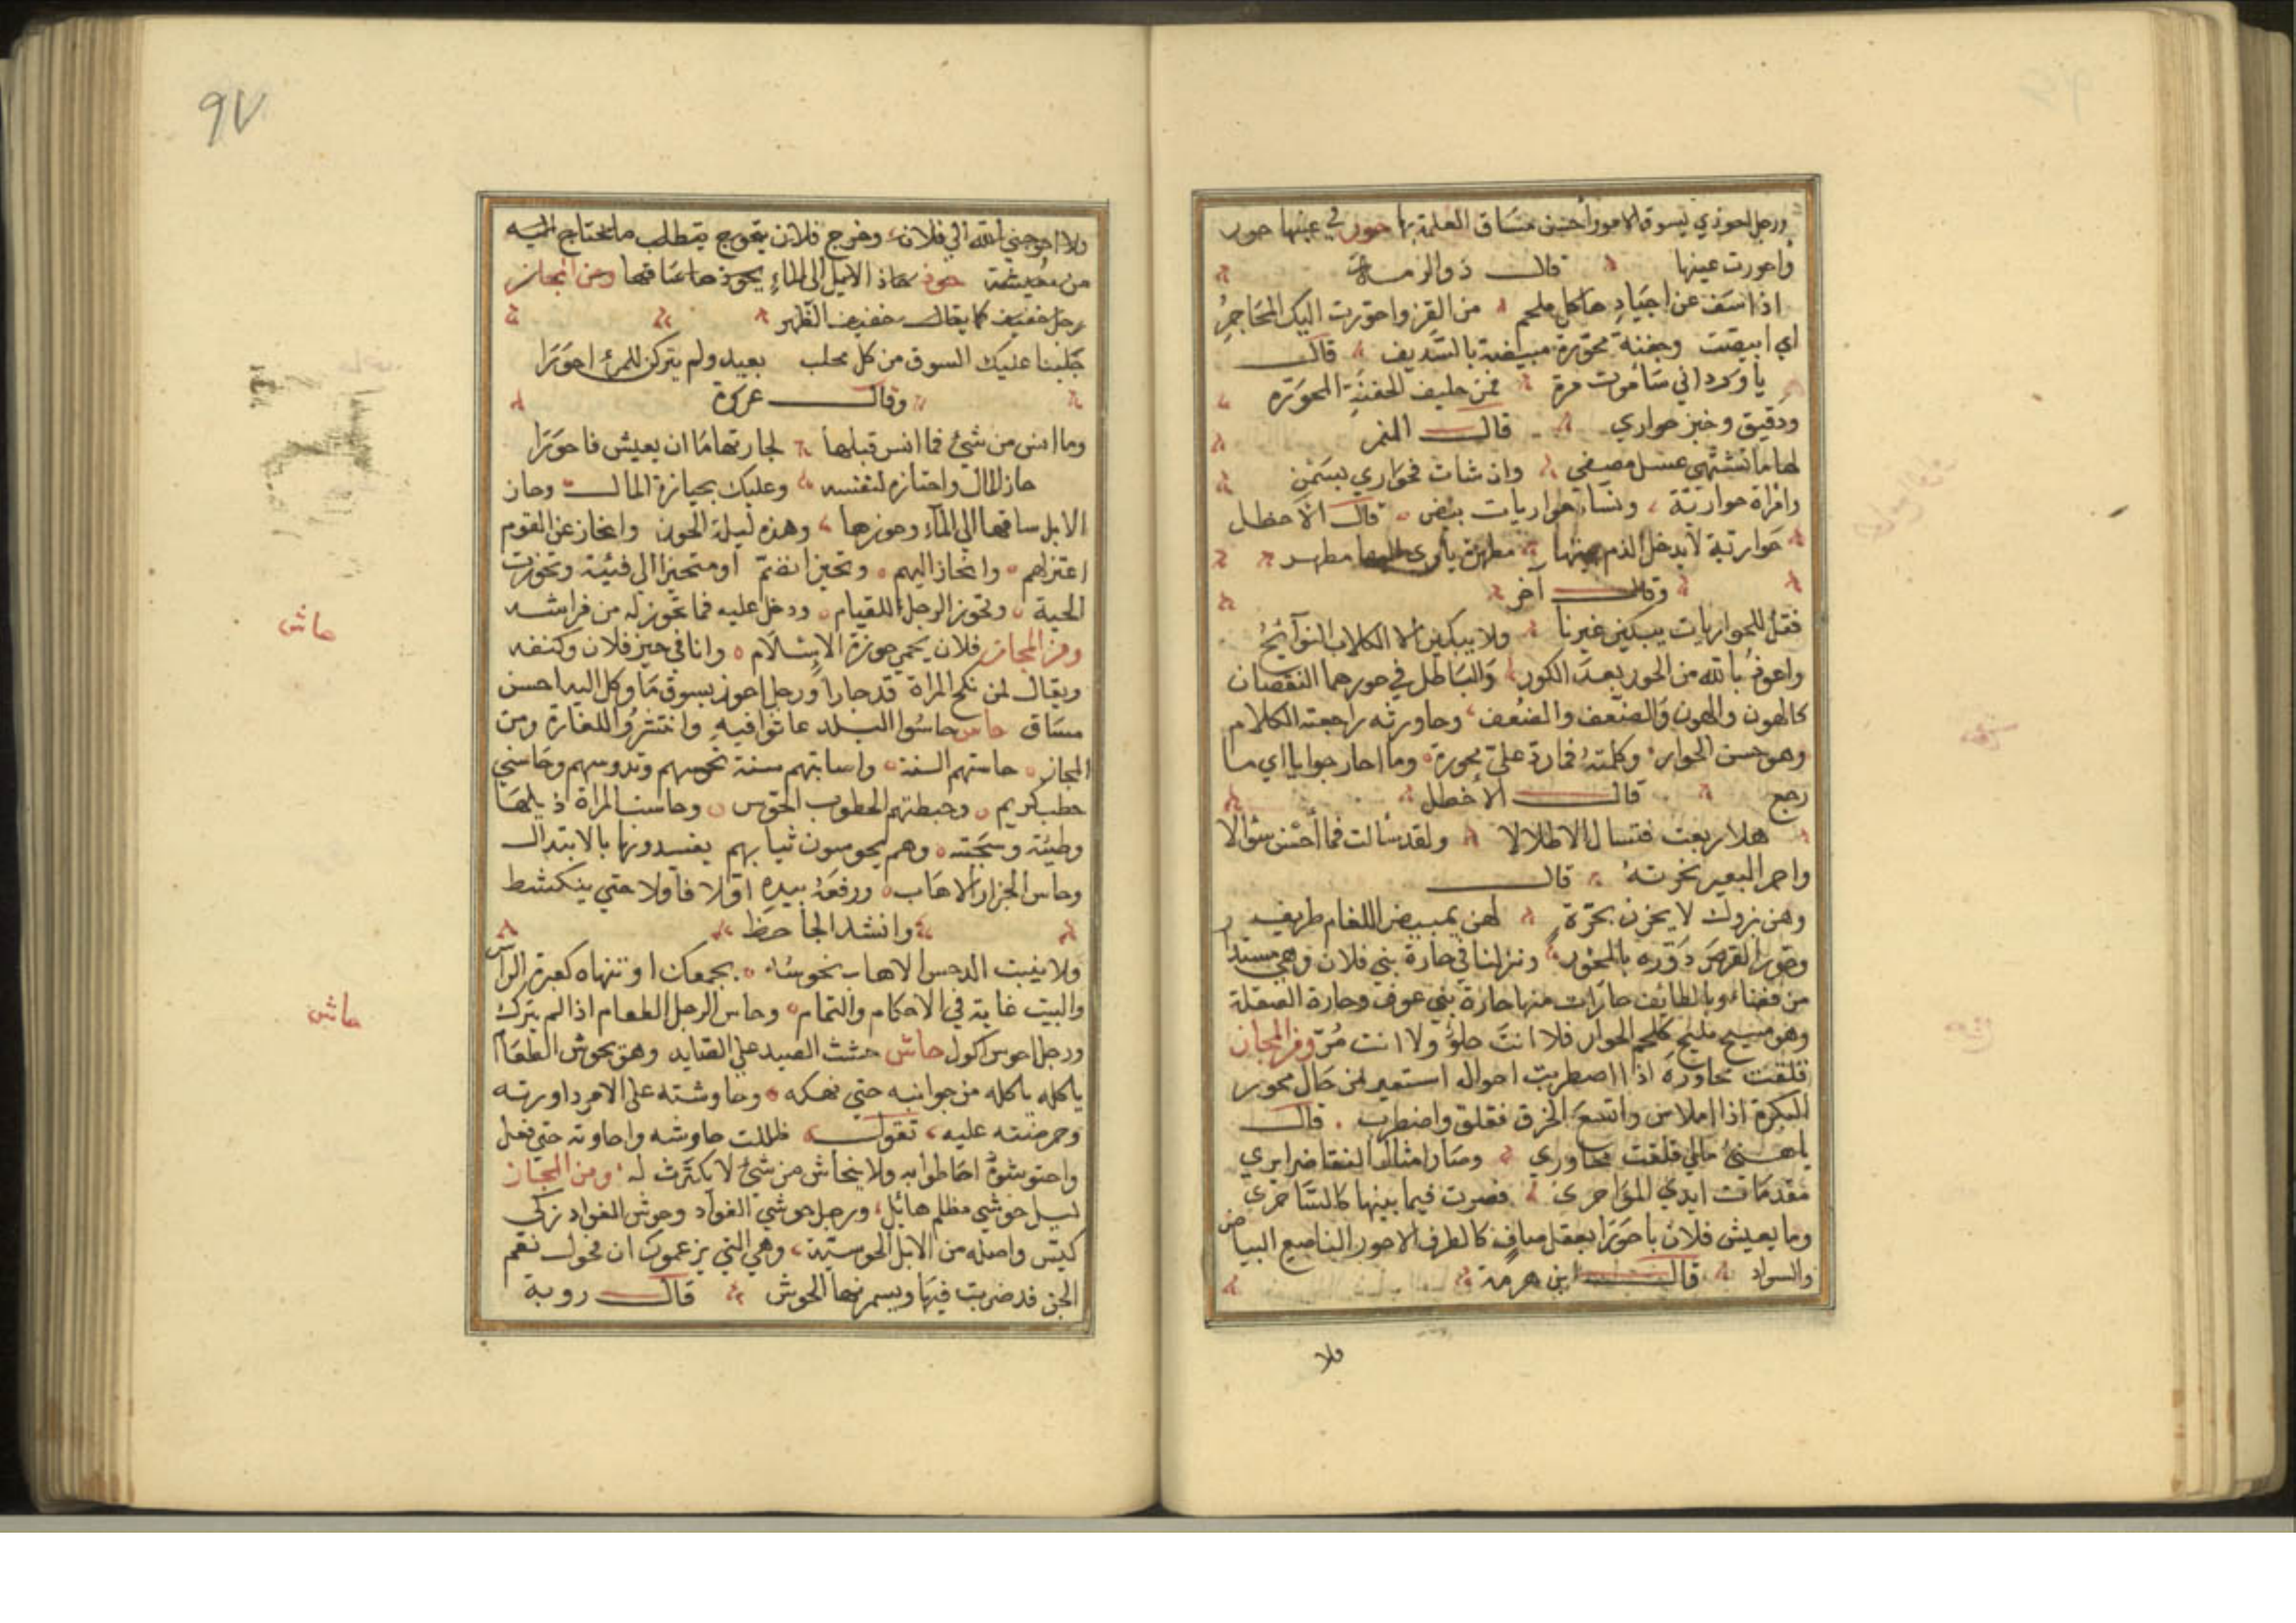 ورجل احوذي يسوق الامور أحسن مساق العلمه بها حور في عينها حور
واحورت عينها قال ذو الرمة
اذا شف عن اجياد ها كل ملحم من القز واحورت اليك المحاجر
اي ابيضت وجفنة محورة مبيضة بالسديف قال
يا ورد اني سأموت مرة فمن حليف الجفنة المحورة
ودقيق وخبز حواري قال النمر
لها ما تشتهي عسل مصفى وان شات فحواري بسمن
وامراة حوارية ونساء حواريات بيض قال الاخطل
حوارية لا يدخل الذم بيتها مطهرة يأوي اليها مطهر
وقال آخر
فقل للحواريات يبكين غيرنا ولا يبكين الا الكلاب النوابح
واعوذ بالله من الحور بعد الكور والباطل في حور هما النقصان
كالهون والهون والضعف والضعف وحاورته راجعته الكلام
وهو حسن الحوار وكلمته فمارد على محورة وما احار جوابا اي ما
رجع قال الأخطل
هلا ربعت فتسال الاطلالا ولقد سألت فما أحرن سؤالا
واحر البعير نحرته قال
وهن بروك لا يحرن بجرة لهن بمبيض اللغام طريف
وحور القرص دوره بالمحور ونزلنا في حارة بني فلان وهي مستدار
من فضاء وبالطائف حارات منها حارة بني عوف وحارة الصقلة
وهو مسيخ مليخ كلحم الحوار فلا انت حلو ولا انت مر ومن المجاز
قلقت محاوره اذا اضطربت احواله استعير من حال محور
البكرة اذا املاس واتسع الخرق فقلق واضطرب قال
يا هيئ مالي قلقت محاوري وصار امثال الفغا ضرايري
مقدمات ايدي المواخرى فصرت فيما بينها كالساحرى
وما يعيش فلان باحور اي بعقل صاف كالطرف الاحور الناصع البياض
والسواد قال ابن هرمة
فلا
٩٧
ولا احوجني الله الى فلان وخرج فلان يتحوج يتطلب ما يحتاج اليه
من معيشة حوذ حاذ الابل الى الماء يحوذها ساقها ومن المجاز
رجل خفيف كما يقال خفيف الظهر
جلبنا عليك السوق من كل مجلب بعيد ولم يتركن للمرء احورا
وقال عروة
وما انس من شيء فما انس قبلها لجارتها ما ان يعيش فاحورا
حاز المال واحتازه لنفسه وعليك بحيازة المال وحاز
الابل ساقها الى الماء وحوزها وهذه ليلة الحوز وانحاز عن القوم
اعتزلهم وانحاز اليهم وتحيز انضم أو متحيزا الى فئية وتحوزت
الحية وتحوز الرجل للقيام ودخل عليه فما تحوز له من فراشه
ومن المجاز فلان يحمي حوزة الاسلام وانا في حيز فلان وكنفه
ويقال لمن نكح المراة قد حازها ورجل احوز يسوق ما وكل اليه احسن
مساق حاس حاسوا البلد عاثوا فيه وانتشروا للغارة ومن
المجاز حاستهم السنة واصابتهم سنة تحوسهم وتدوسهم وحاسني
خطب كريم وخبطتهم الخطوب الحوس وحاست المراة ذيلها
وطئته وسحبته وهم يحوسون ثيابهم يفسدونها بالابتذال
وحاس الجزار الاهاب ورفعه بيده اولا فأولا حتي ينكشط
وانشد الجاحظ
ولا ينبت الدحس الاهاب تحوسه بجمعك او تنهاه كعبرة الراس
والبيت غاية في الاحكام والتمام وحاس الرجل الطعام اذا لم يترك
ورجل احوس اكول حاش حشت الصيد على الصايد وهو يحوش الطعام
ياكله ياكله من جوانبه حتي نهكه وحاوشته على الامر داورته
وحرضته عليه تقول ظللت حاوشه واحاوته حتى فعل
واحتوشوه احاطوا به ولا ينحاش من شيء لا يكترث له ومن المجاز
ليل حوشي مظلم هائل ورجل حوشي الفؤاد وحوش الفواد زكى
كيس واصله من الابل الحوشية وهي التي يزعمون ان فحول نعم
الجن قد ضربت فيها ويسمونها الحوش قال روبة
حاش
حاش